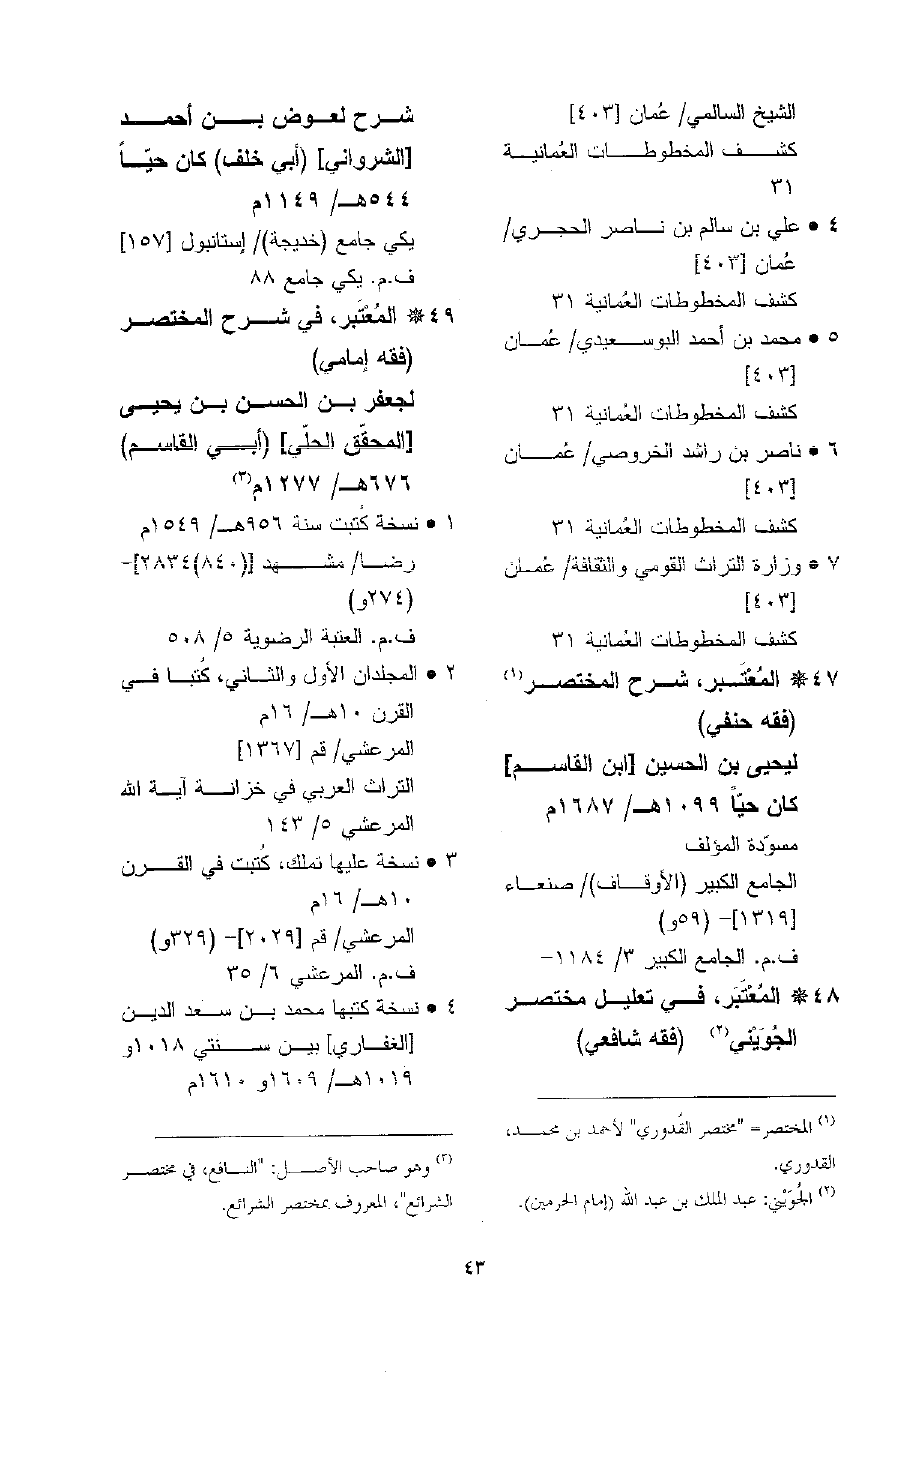 الشيخ السالمي/ عُمان [٤٠٣]
كشف المخطوطات العُمانية
٣١
٤ • علي بن سالم بن ناصر الحجري/
عُمان [٤٠٣]
كشف المخطوطات العُمانية ٣١
٥ • محمد بن أحمد البوسعيدي/ عُمان
[٤٠٣]
كشف المخطوطات العُمانية ٣١
٦ • ناصر بن راشد الخروصي/ عُمان
[٤٠٣]
كشف المخطوطات العُمانية ٣١
٧ • وزارة التراث القومي والثقافة/ عُمان
[٤٠٣]
كشف المخطوطات العُمانية ٣١
٤٧* المُعْتَبر، شرح المختصر(١)
(فقه حنفي)
ليحيى بن الحسين [ابن القاسم]
كان حيّاً ١٠٩٩هـ/ ١٦٨٧م
مسوّدة المؤلف
الجامع الكبير (الأوقاف)/ صنعاء
[١٣١٩]- (٥٩و)
ف.م. الجامع الكبير ٣/ ١١٨٤-
٤٨* المُعْتَبَر، في تعليل مختصر
الجُوَيْني(٢) (فقه شافعي)
(١) المختصر= "مختصر القُدوري" لأحمد بن محمد،
القدوري.
(٢) الجُوَيْني: عبد الملك بن عبد الله (إمام الحرمين).
شرح لعوض بن أحمد
[الشرواني] (أبي خلف) كان حيّاً
٥٤٤هـ/ ١١٤٩م
يكي جامع (خديجة)/ إستانبول [١٥٧]
ف.م. يكي جامع ٨٨
٤٩* المُعْتَبر، في شرح المختصر
(فقه إمامي)
لجعفر بن الحسن بن يحيى
[المحقّق الحلّي] (أبي القاسم)
٦٧٦هـ/ ١٢٧٧م(٣)
١ • نسخة كُتبت سنة ٩٥٦هـ/ ١٥٤٩م
رضا/ مشهد [(٨٤٠)٢٨٣٤]-
(٢٧٤و)
ف.م. العتبة الرضوية ٥/ ٥٠٨
٢ • المجلدان الأول والثاني، كُتبا في
القرن ١٠هـ/ ١٦م
المرعشي/ قم [١٣٦٧]
التراث العربي في خزانة آية الله
المرعشي ٥/ ١٤٣
٣ • نسخة عليها تملك، كُتبت في القرن
١٠هـ/ ١٦م
المرعشي/ قم [٢٠٢٩]- (٣٢٩و)
ف.م. المرعشي ٦/ ٣٥
٤ • نسخة كتبها محمد بن سعد الدين
[الغفاري] بين سنتي ١٠١٨و
١٠١٩هـ/ ١٦٠٩و ١٦١٠م
(٣) وهو صاحب الأصل: "النافع، في مختصر
الشرائع"، المعروف بمختصر الشرائع.
٤٣